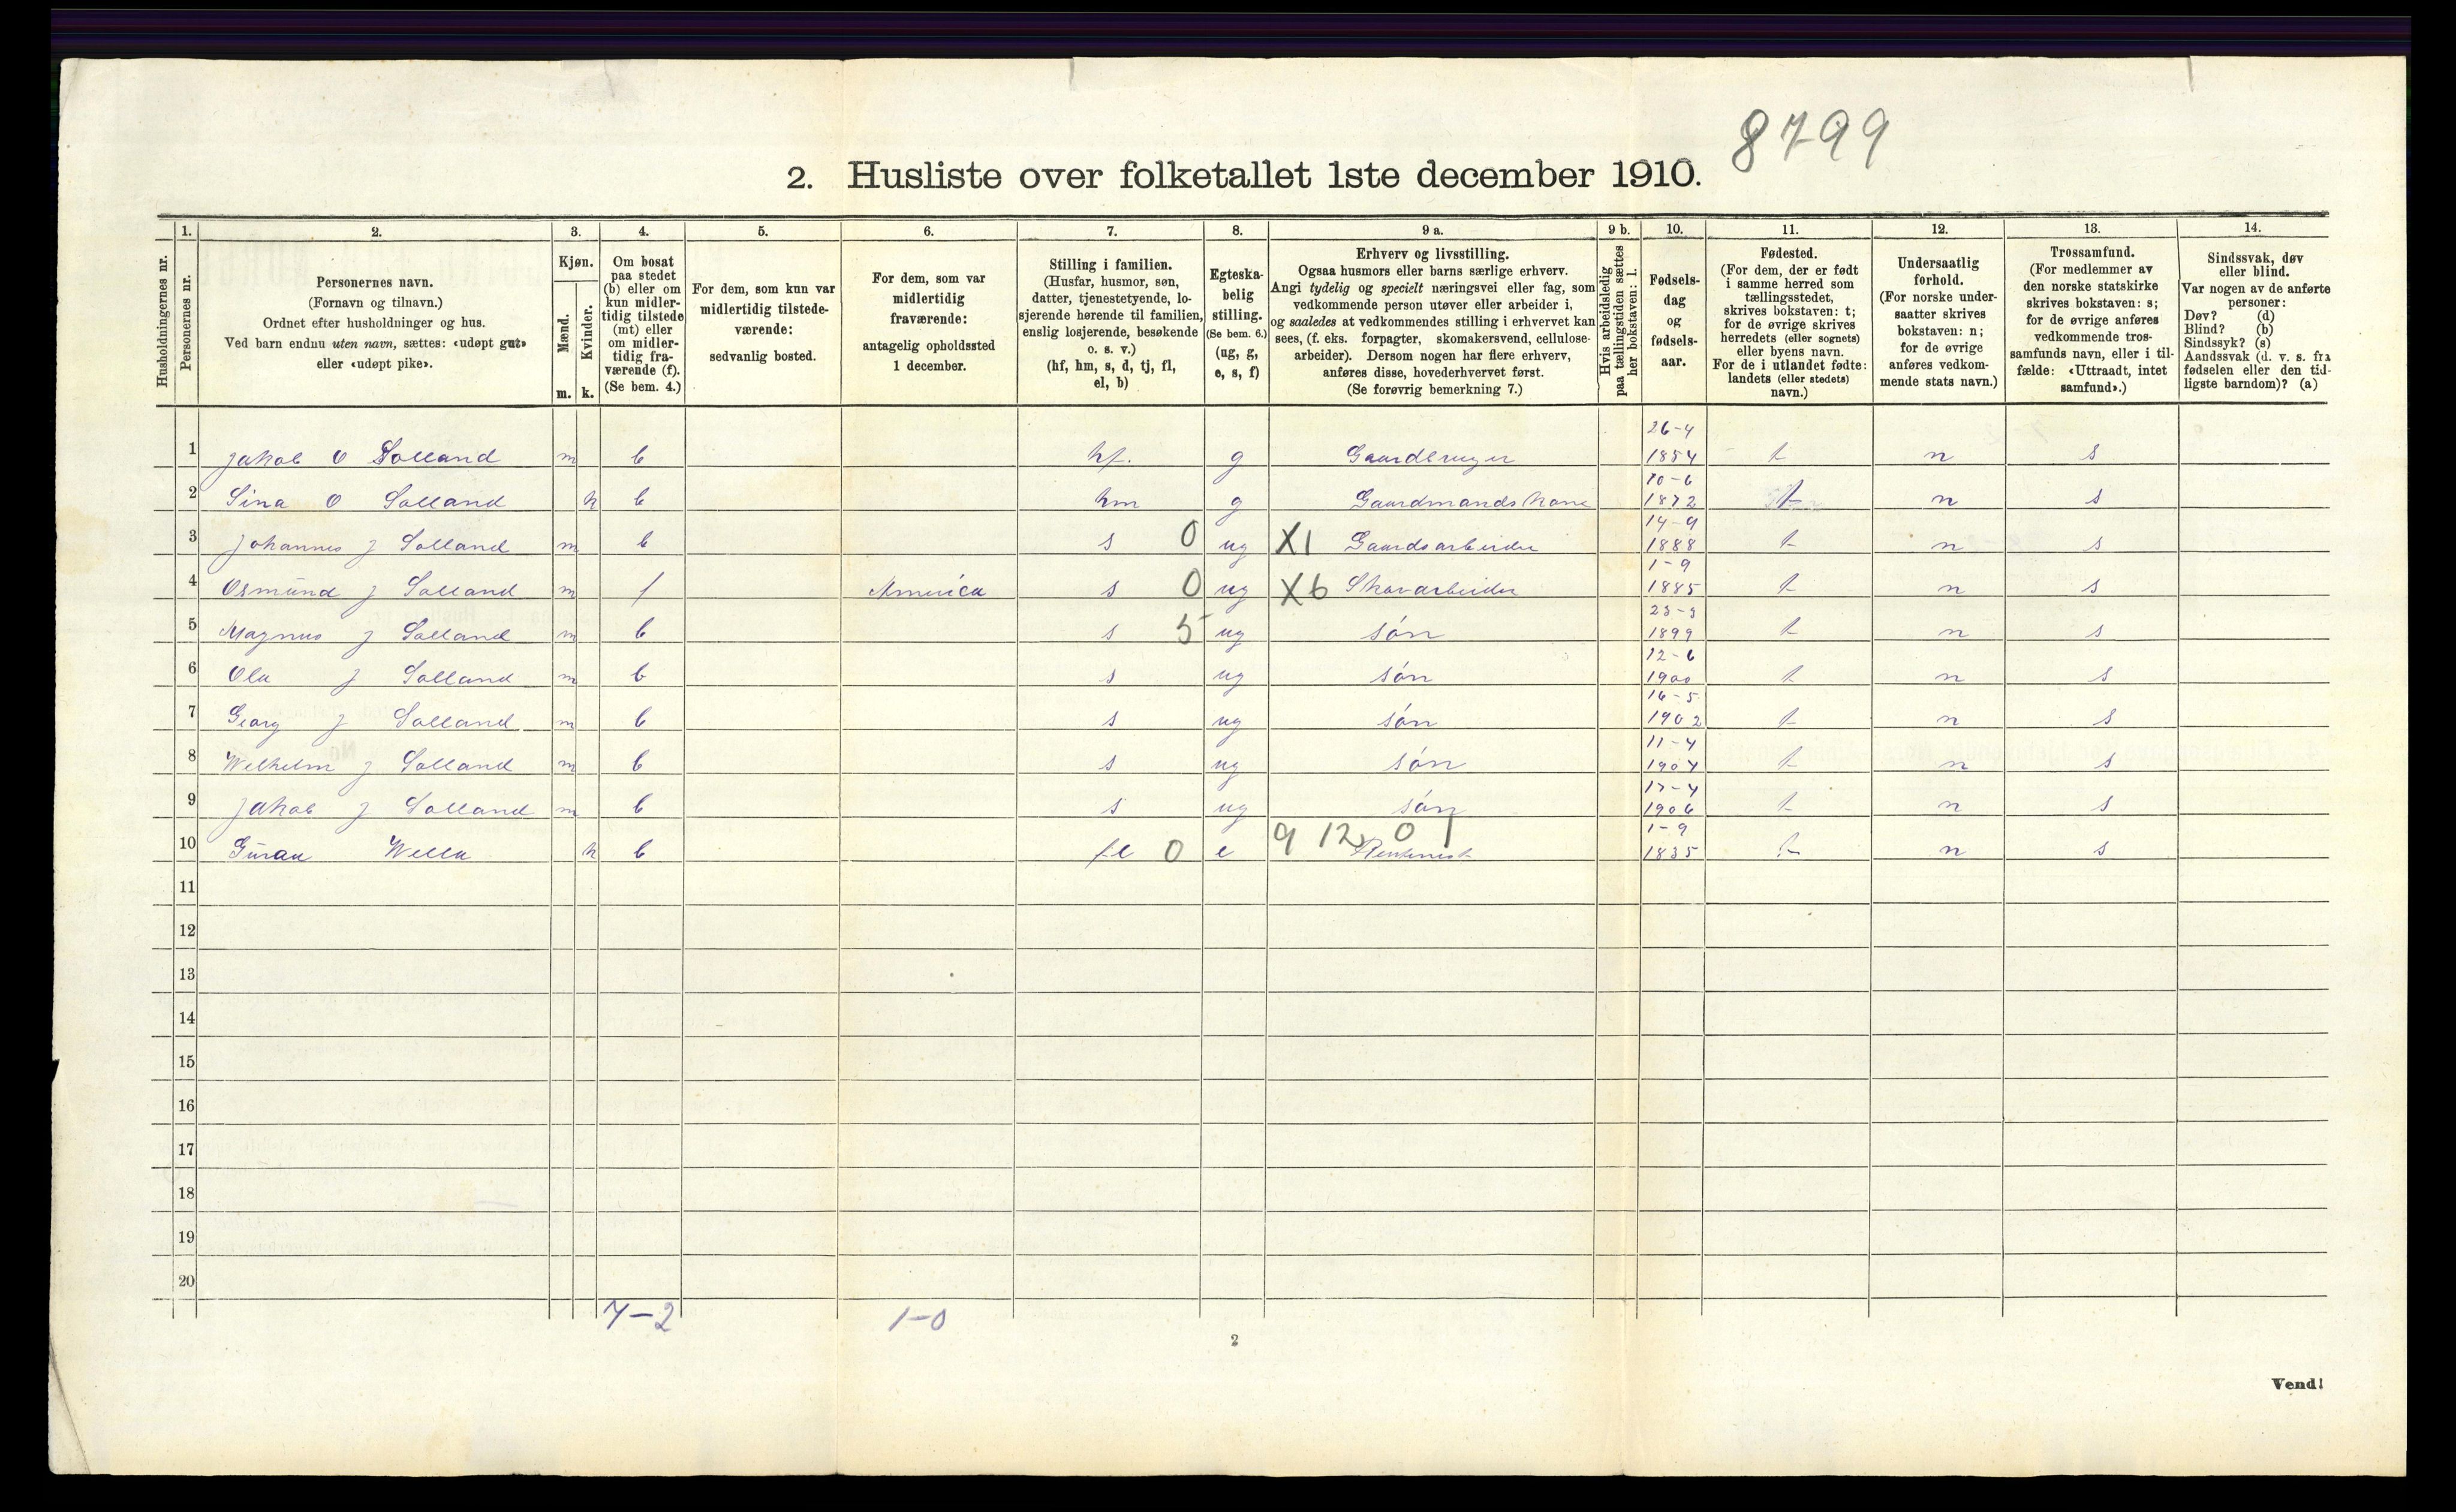 8799
2. Husliste over folketallet 1ste december 1910.
Husholdningernes nr.
1. Personernes nr.
2. Personernes navn. (Fornavn og tilnavn.) Ordnet efter husholdninger og hus. Ved barn endnu uten navn, sættes: «udøpt gut» eller «udøpt pike».
3. Kjøn. Mænd. m. Kvinder. k.
4. Om bosat paa stedet (b) eller om kun midlertidig tilstede (mt) eller om midlertidig fraværende (f). (Se bem. 4.)
5. For dem, som kun var midlertidig tilstedeværende: sedvanlig bosted.
6. For dem, som var midlertidig fraværende: antagelig opholdssted 1 december.
7. Stilling i familien. (Husfar, husmor, søn, datter, tjenestetyende, losjerende hørende til familien, enslig losjerende, besøkende o. s. v.) (hf, hm, s, d, tj, fl, el, b)
8. Egteskabelig stilling. (Se bem. 6.) (ug, g, e, s, f)
9 a. Erhverv og livsstilling. Ogsaa husmors eller barns særlige erhverv. Angi tydelig og specielt næringsvei eller fag, som vedkommende person utøver eller arbeider i, og saaledes at vedkommendes stilling i erhvervet kan sees, (f. eks. forpagter, skomakersvend, cellulosearbeider). Dersom nogen har flere erhverv, anføres disse, hovederhvervet først. (Se forøvrig bemerkning 7.)
9 b. Hvis arbeidsledig paa tællingstiden sættes her bokstaven: l.
10. Fødselsdag og fødselsaar.
11. Fødested. (For dem, der er født i samme herred som tællingsstedet, skrives bokstaven: t; for de øvrige skrives herredets (eller sognets) eller byens navn. For de i utlandet fødte: landets (eller stedets) navn.)
12. Undersaatlig forhold. (For norske undersaatter skrives bokstaven: n; for de øvrige anføres vedkommende stats navn.)
13. Trossamfund. (For medlemmer av den norske statskirke skrives bokstaven: s; for de øvrige anføres vedkommende trossamfunds navn, eller i tilfælde: «Uttraadt, intet samfund».)
14. Sindssvak, døv eller blind. Var nogen av de anførte personer: Døv? (d) Blind? (b) Sindssyk? (s) Aandssvak (d. v. s. fra fødselen eller den tidligste barndom)? (a)
1 Jakob O Solland m b hf. g Gaardbruger 26-4 1854 t n s
2 Sina O Solland k b hm g Gaardmandskone 10-6 1872 t n s
3 Johannes J Solland m b s 0 ug X1 Gaardsarbeider 14-9 1888 t n s
4 Osmund J Solland m f America s 0 ug X6 Skovarbeider 1-9 1885 t n s
5 Magnus J Solland m b s 5 ug søn 23-3 1899 t n s
6 Ola J Solland m b s ug søn 12-6 1900 t n s
7 Georg J Solland m b s ug søn 16-5 1902 t n s
8 Wilhelm J Solland m b s ug søn 11-4 1904 t n s
9 Jakob J Solland m b s ug søn 17-4 1906 t n s
10 Guran k b fl 0 e 9 12 0 1 1-9 1835 t n s
11
12
13
14
15
16
17
18
19
20
7-2 1-0
2
Vend!